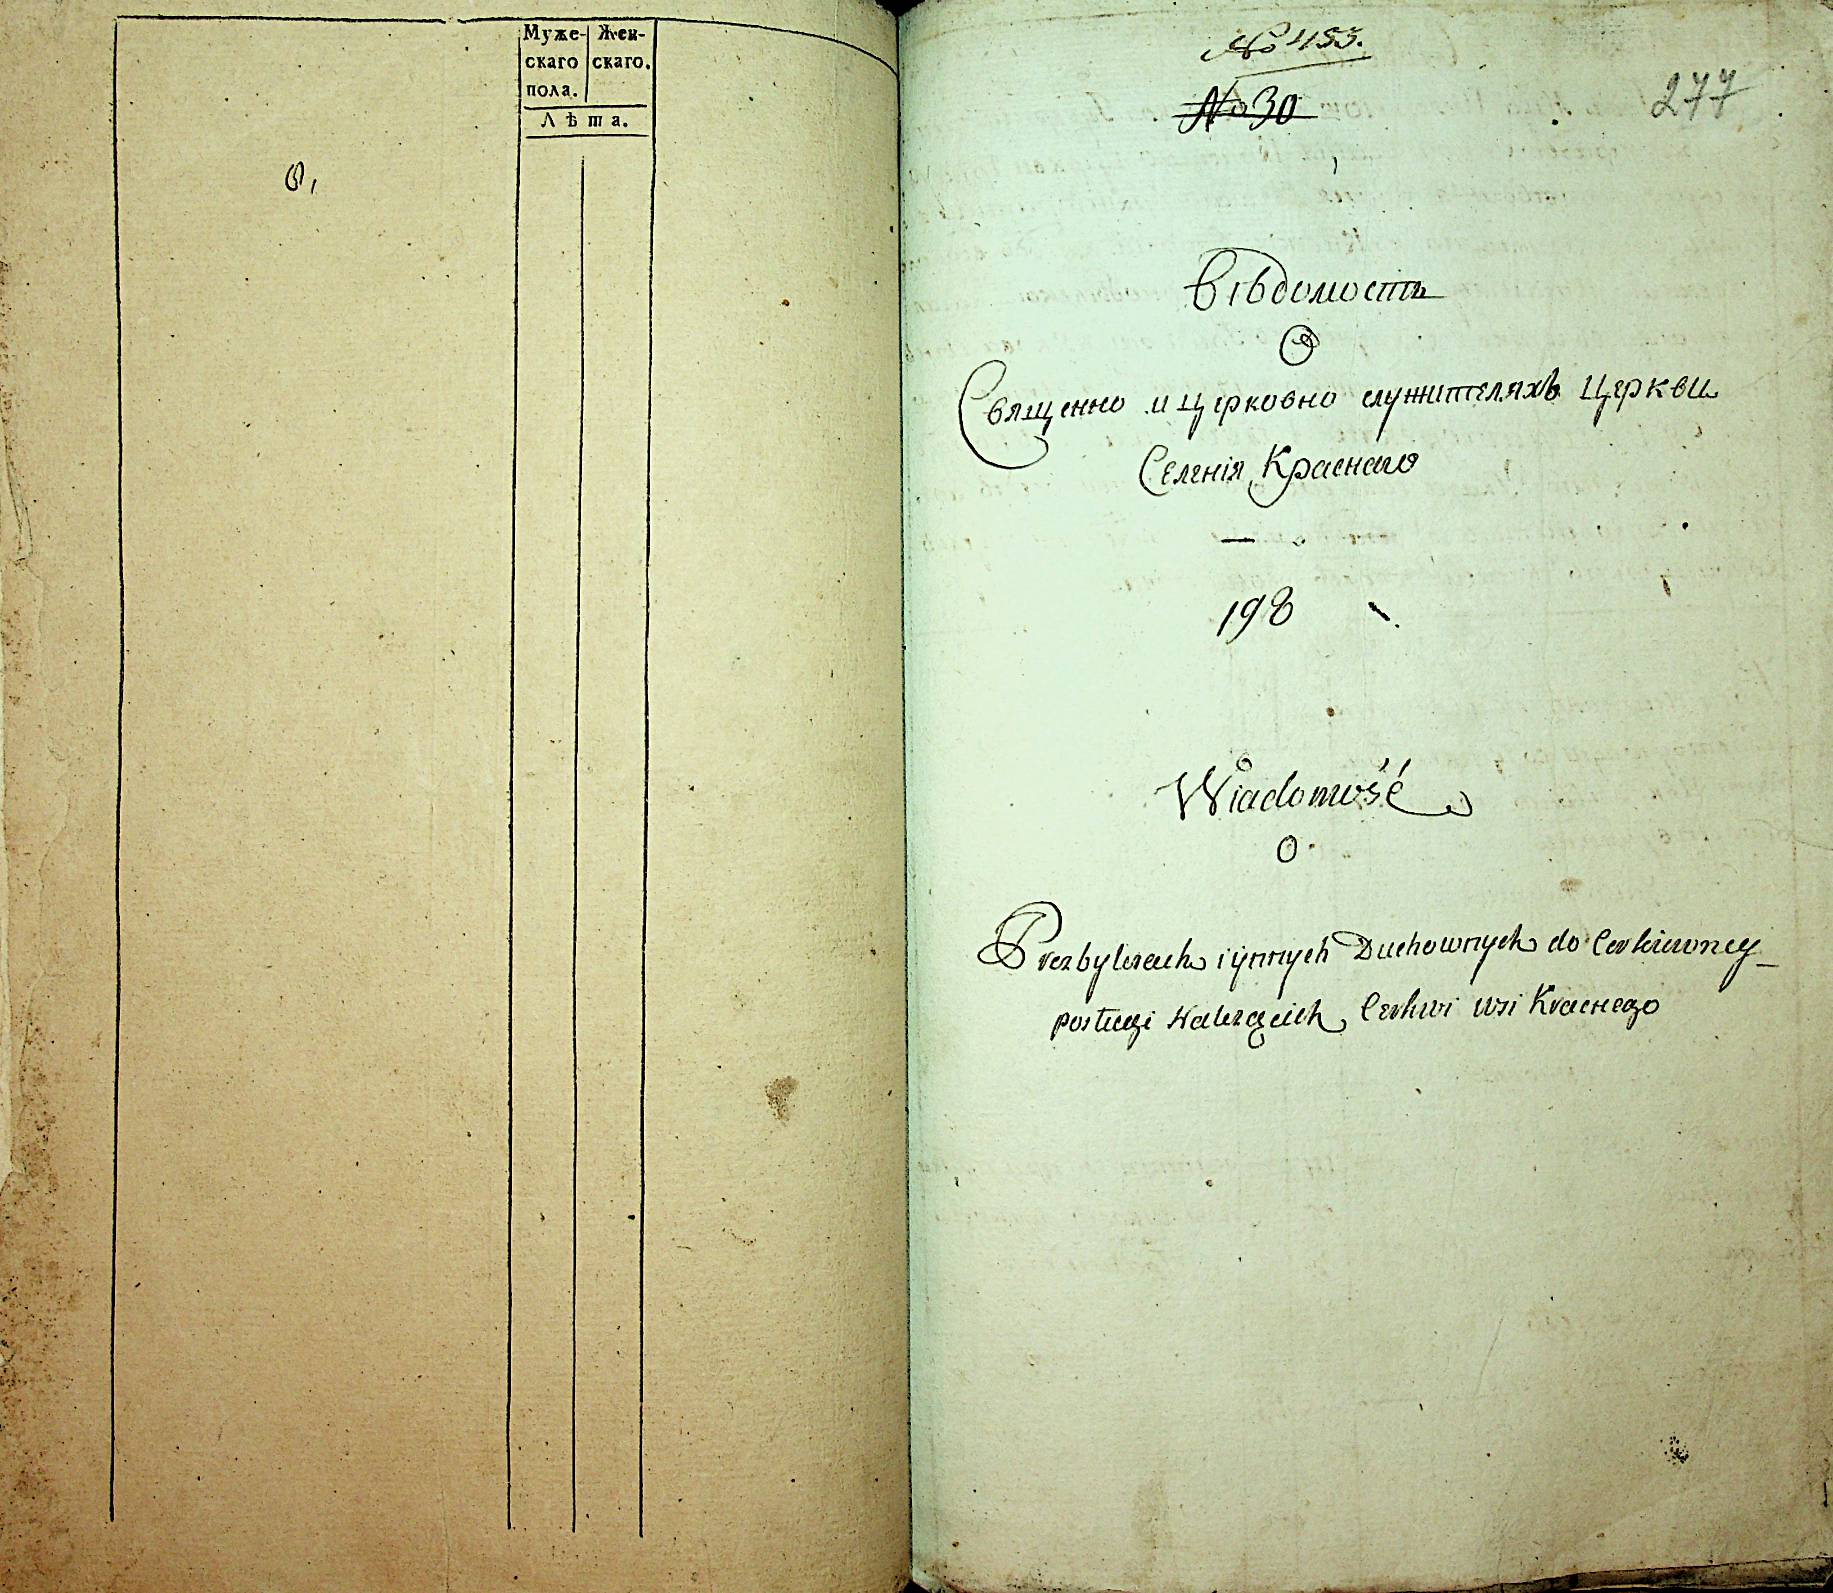 Муже- Жен-
скаго скаго.
пола.
Лѣта.
№ 455.
№ 30
277
Вѣдомость
О
Священно и церковно служителяхъ Церкви
Селенія Краснаго
198
Wiadomość
O
Prezbyterach i ynnych Duchownych do Cerkiewney
posługi Należących Cerkwi wsi Krasнego